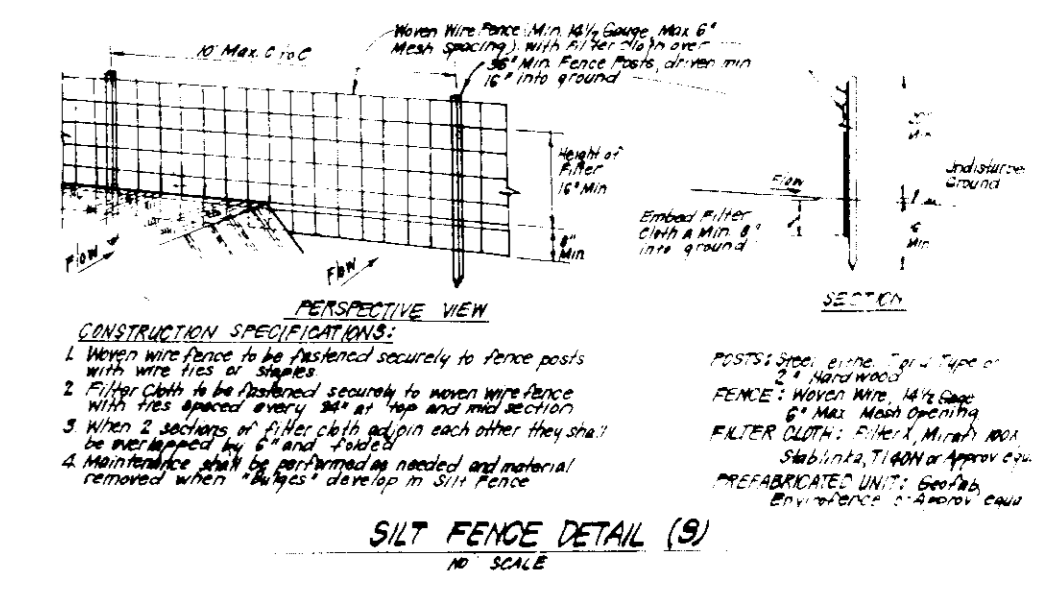 Woven Wire Fence (Min. 14½ Gauge, Max 6"
Mesh Spacing) with Filter Cloth over
10' Max. C to C
36" Min. Fence Posts, driven min
16" into ground
Height of
Filter
16" Min
8"
Min
Flow
Flow
PERSPECTIVE VIEW
Min
Undisturbed
Ground
Flow
Embed Filter
Cloth A Min. 8"
into ground
Min.
SECTION
CONSTRUCTION SPECIFICATIONS:
1. Woven wire fence to be fastened securely to fence posts
with wire ties or staples
2 Filter Cloth to be fastened securely to woven wire fence
with ties spaced every 24" at top and mid section
3. When 2 sections of filter cloth adjoin each other they shall
be overlapped by 6" and folded
4. Maintenance shall be performed as needed and material
removed when "bulges" develop in Silt Fence
POSTS: Steel either T or U Type or
2" Hardwood
FENCE: Woven Wire, 14½ Gage
6" Max Mesh Opening
FILTER CLOTH: Filter X, Mirafi 100X,
Stablinka, T140N or Approv equ.
PREFABRICATED UNIT: Geofab,
Envirofence or Approv equa
SILT FENCE DETAIL (S)
NO SCALE